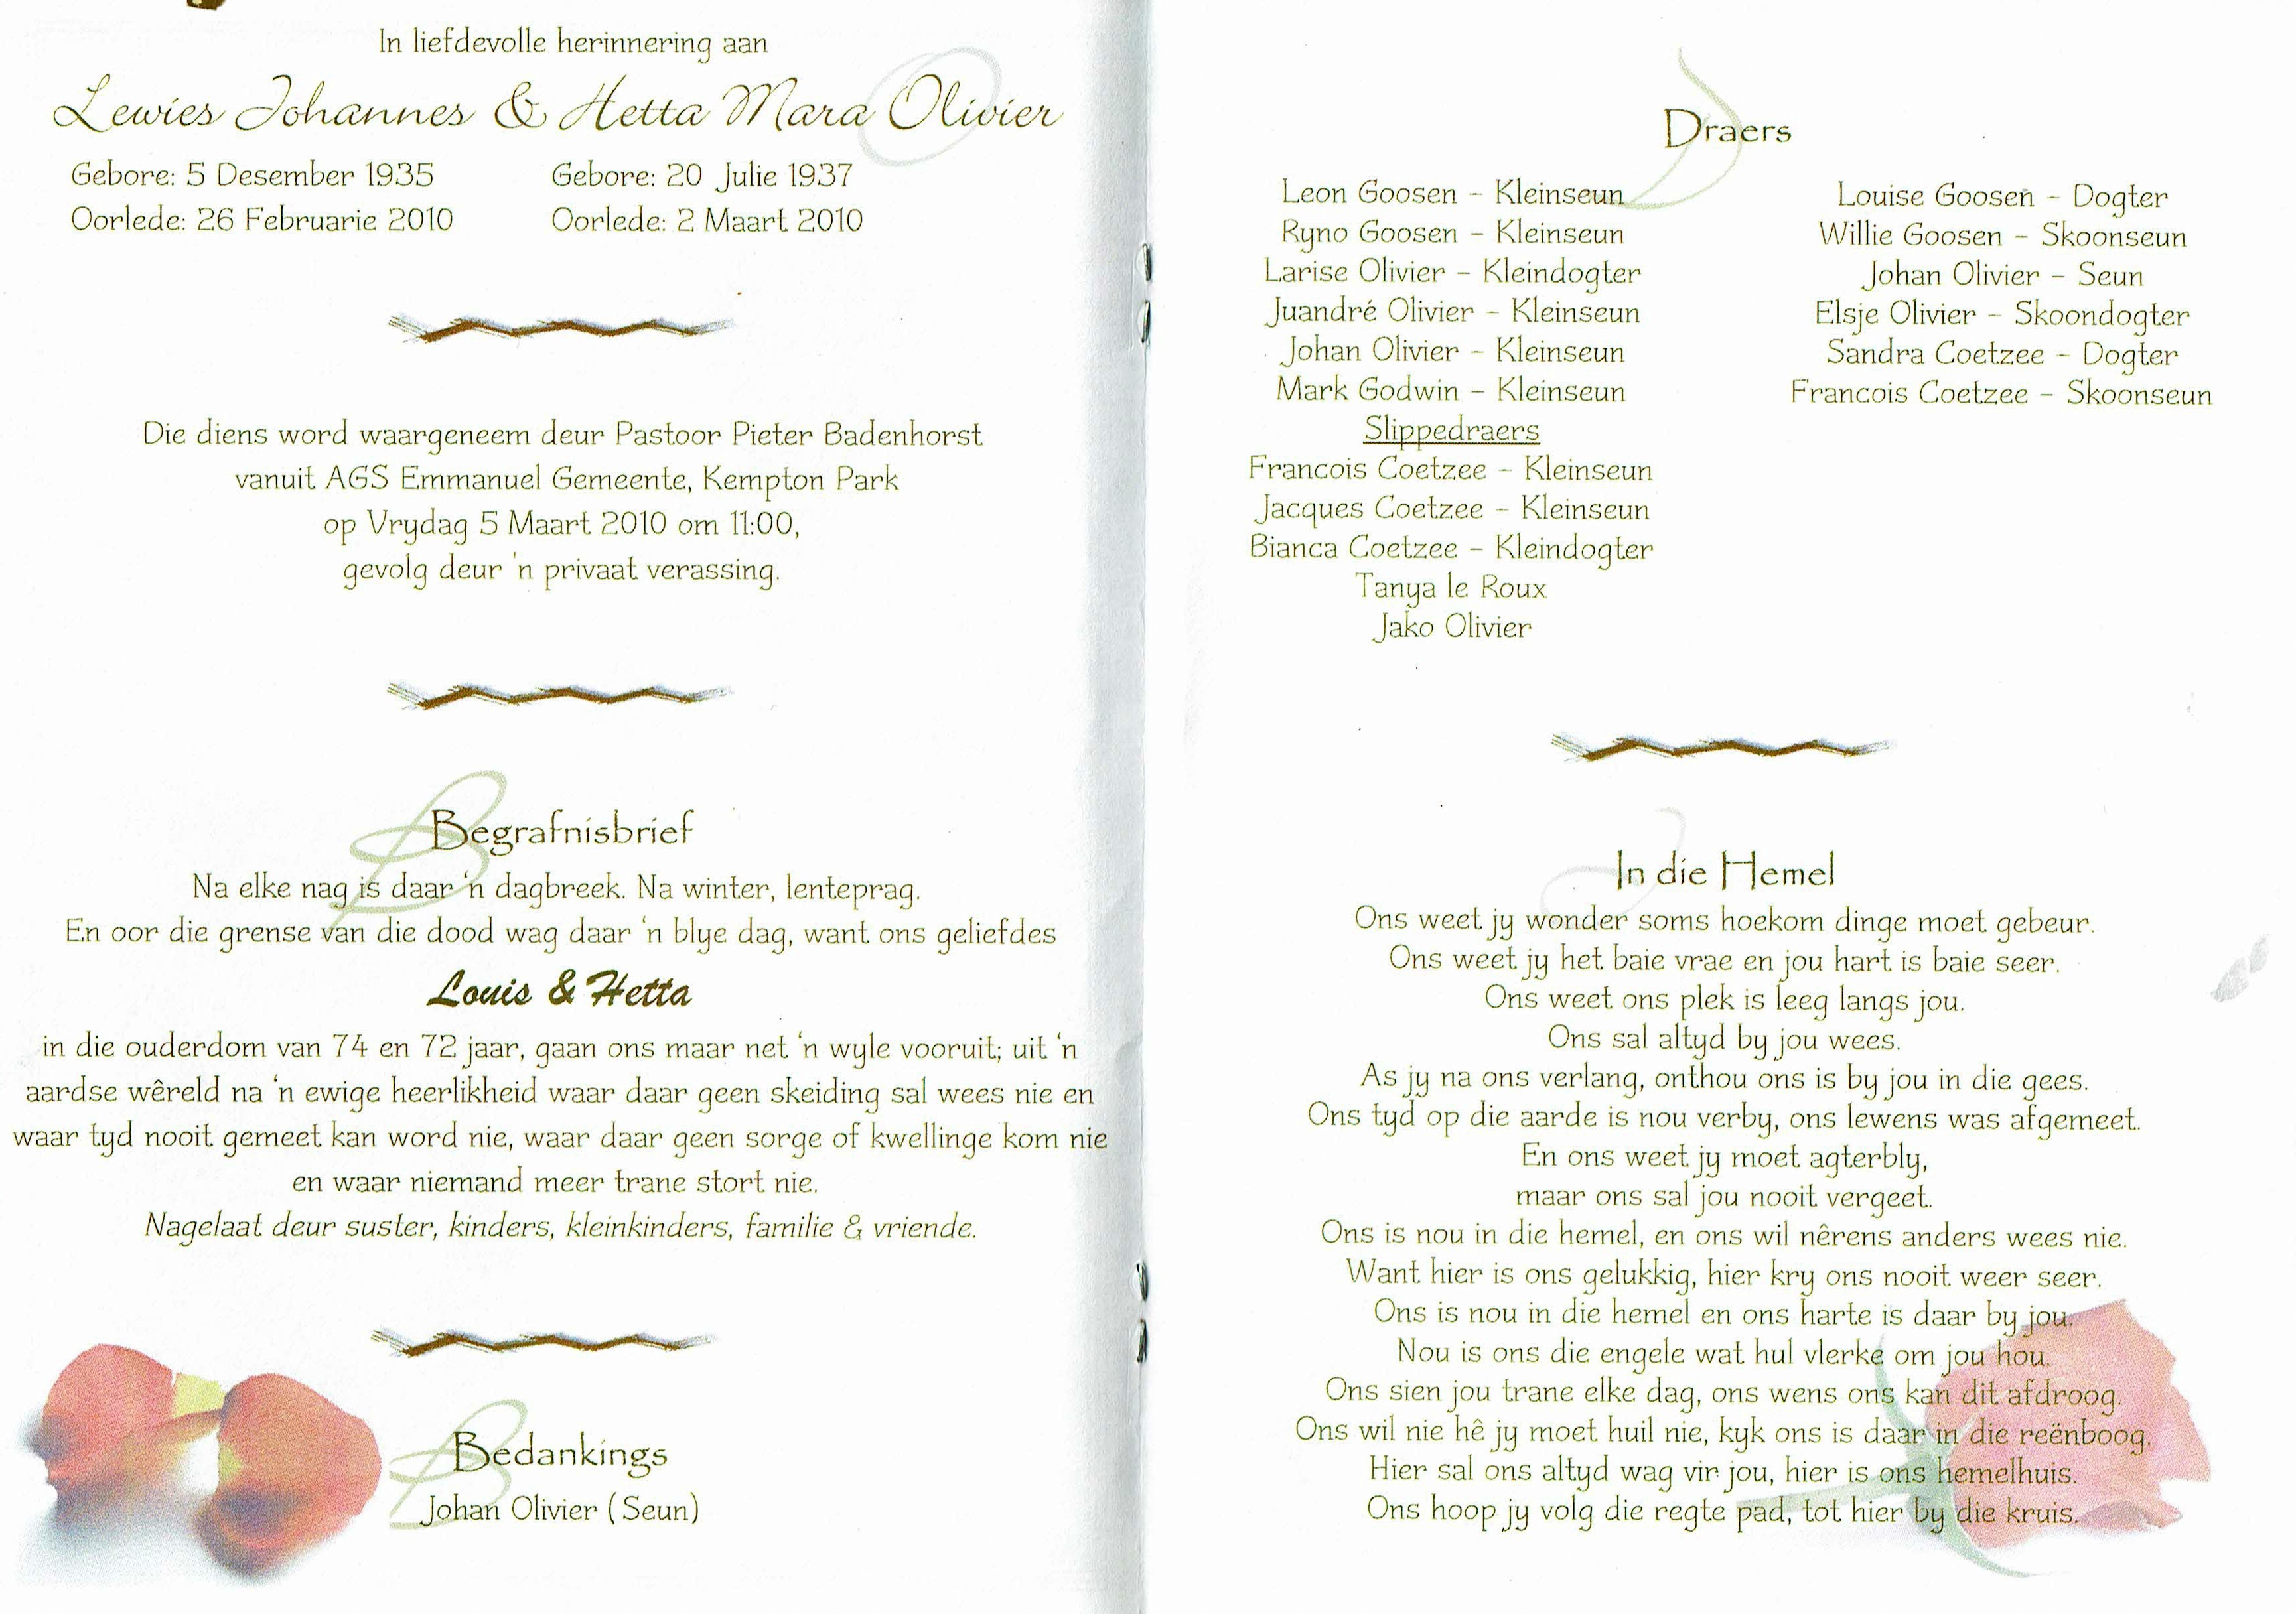 In liefdevolle herinnering aan
Lewies Johannes & Hetta Mara Olivier
Gebore: 5 Desember 1935
Oorlede: 26 Februarie 2010
Gebore: 20 Julie 1937
Oorlede: 2 Maart 2010
Die diens word waargeneem deur Pastoor Pieter Badenhorst
vanuit AGS Emmanuel Gemeente, Kempton Park
op Vrydag 5 Maart 2010 om 11:00,
gevolg deur 'n privaat verassing.
Begrafnisbrief
Na elke nag is daar 'n dagbreek. Na winter, lenteprag.
En oor die grense van die dood wag daar 'n blye dag, want ons geliefdes
Louis & Hetta
in die ouderdom van 74 en 72 jaar, gaan ons maar net 'n wyle vooruit; uit 'n
aardse wêreld na 'n ewige heerlikheid waar daar geen skeiding sal wees nie en
waar tyd nooit gemeet kan word nie, waar daar geen sorge of kwellinge kom nie
en waar niemand meer trane stort nie.
Nagelaat deur suster, kinders, kleinkinders, familie & vriende.
Bedankings
Johan Olivier (Seun)
Draers
Leon Goosen - Kleinseun
Ryno Goosen - Kleinseun
Larise Olivier - Kleindogter
Juandré Olivier - Kleinseun
Johan Olivier - Kleinseun
Mark Godwin - Kleinseun
Slippedraers
Francois Coetzee - Kleinseun
Jacques Coetzee - Kleinseun
Bianca Coetzee - Kleindogter
Tanya le Roux
Jako Olivier
Louise Goosen - Dogter
Willie Goosen - Skoonseun
Johan Olivier - Seun
Elsje Olivier - Skoondogter
Sandra Coetzee - Dogter
Francois Coetzee - Skoonseun
In die Hemel
Ons weet jy wonder soms hoekom dinge moet gebeur.
Ons weet jy het baie vrae en jou hart is baie seer.
Ons weet ons plek is leeg langs jou.
Ons sal altyd by jou wees.
As jy na ons verlang, onthou ons is by jou in die gees.
Ons tyd op die aarde is nou verby, ons lewens was afgemeet.
En ons weet jy moet agterbly,
maar ons sal jou nooit vergeet.
Ons is nou in die hemel, en ons wil nêrens anders wees nie.
Want hier is ons gelukkig, hier kry ons nooit weer seer.
Ons is nou in die hemel en ons harte is daar by jou.
Nou is ons die engele wat hul vlerke om jou hou.
Ons sien jou trane elke dag, ons wens ons kan dit afdroog.
Ons wil nie hê jy moet huil nie, kyk ons is daar in die reënboog.
Hier sal ons altyd wag vir jou, hier is ons hemelhuis.
Ons hoop jy volg die regte pad, tot hier by die kruis.